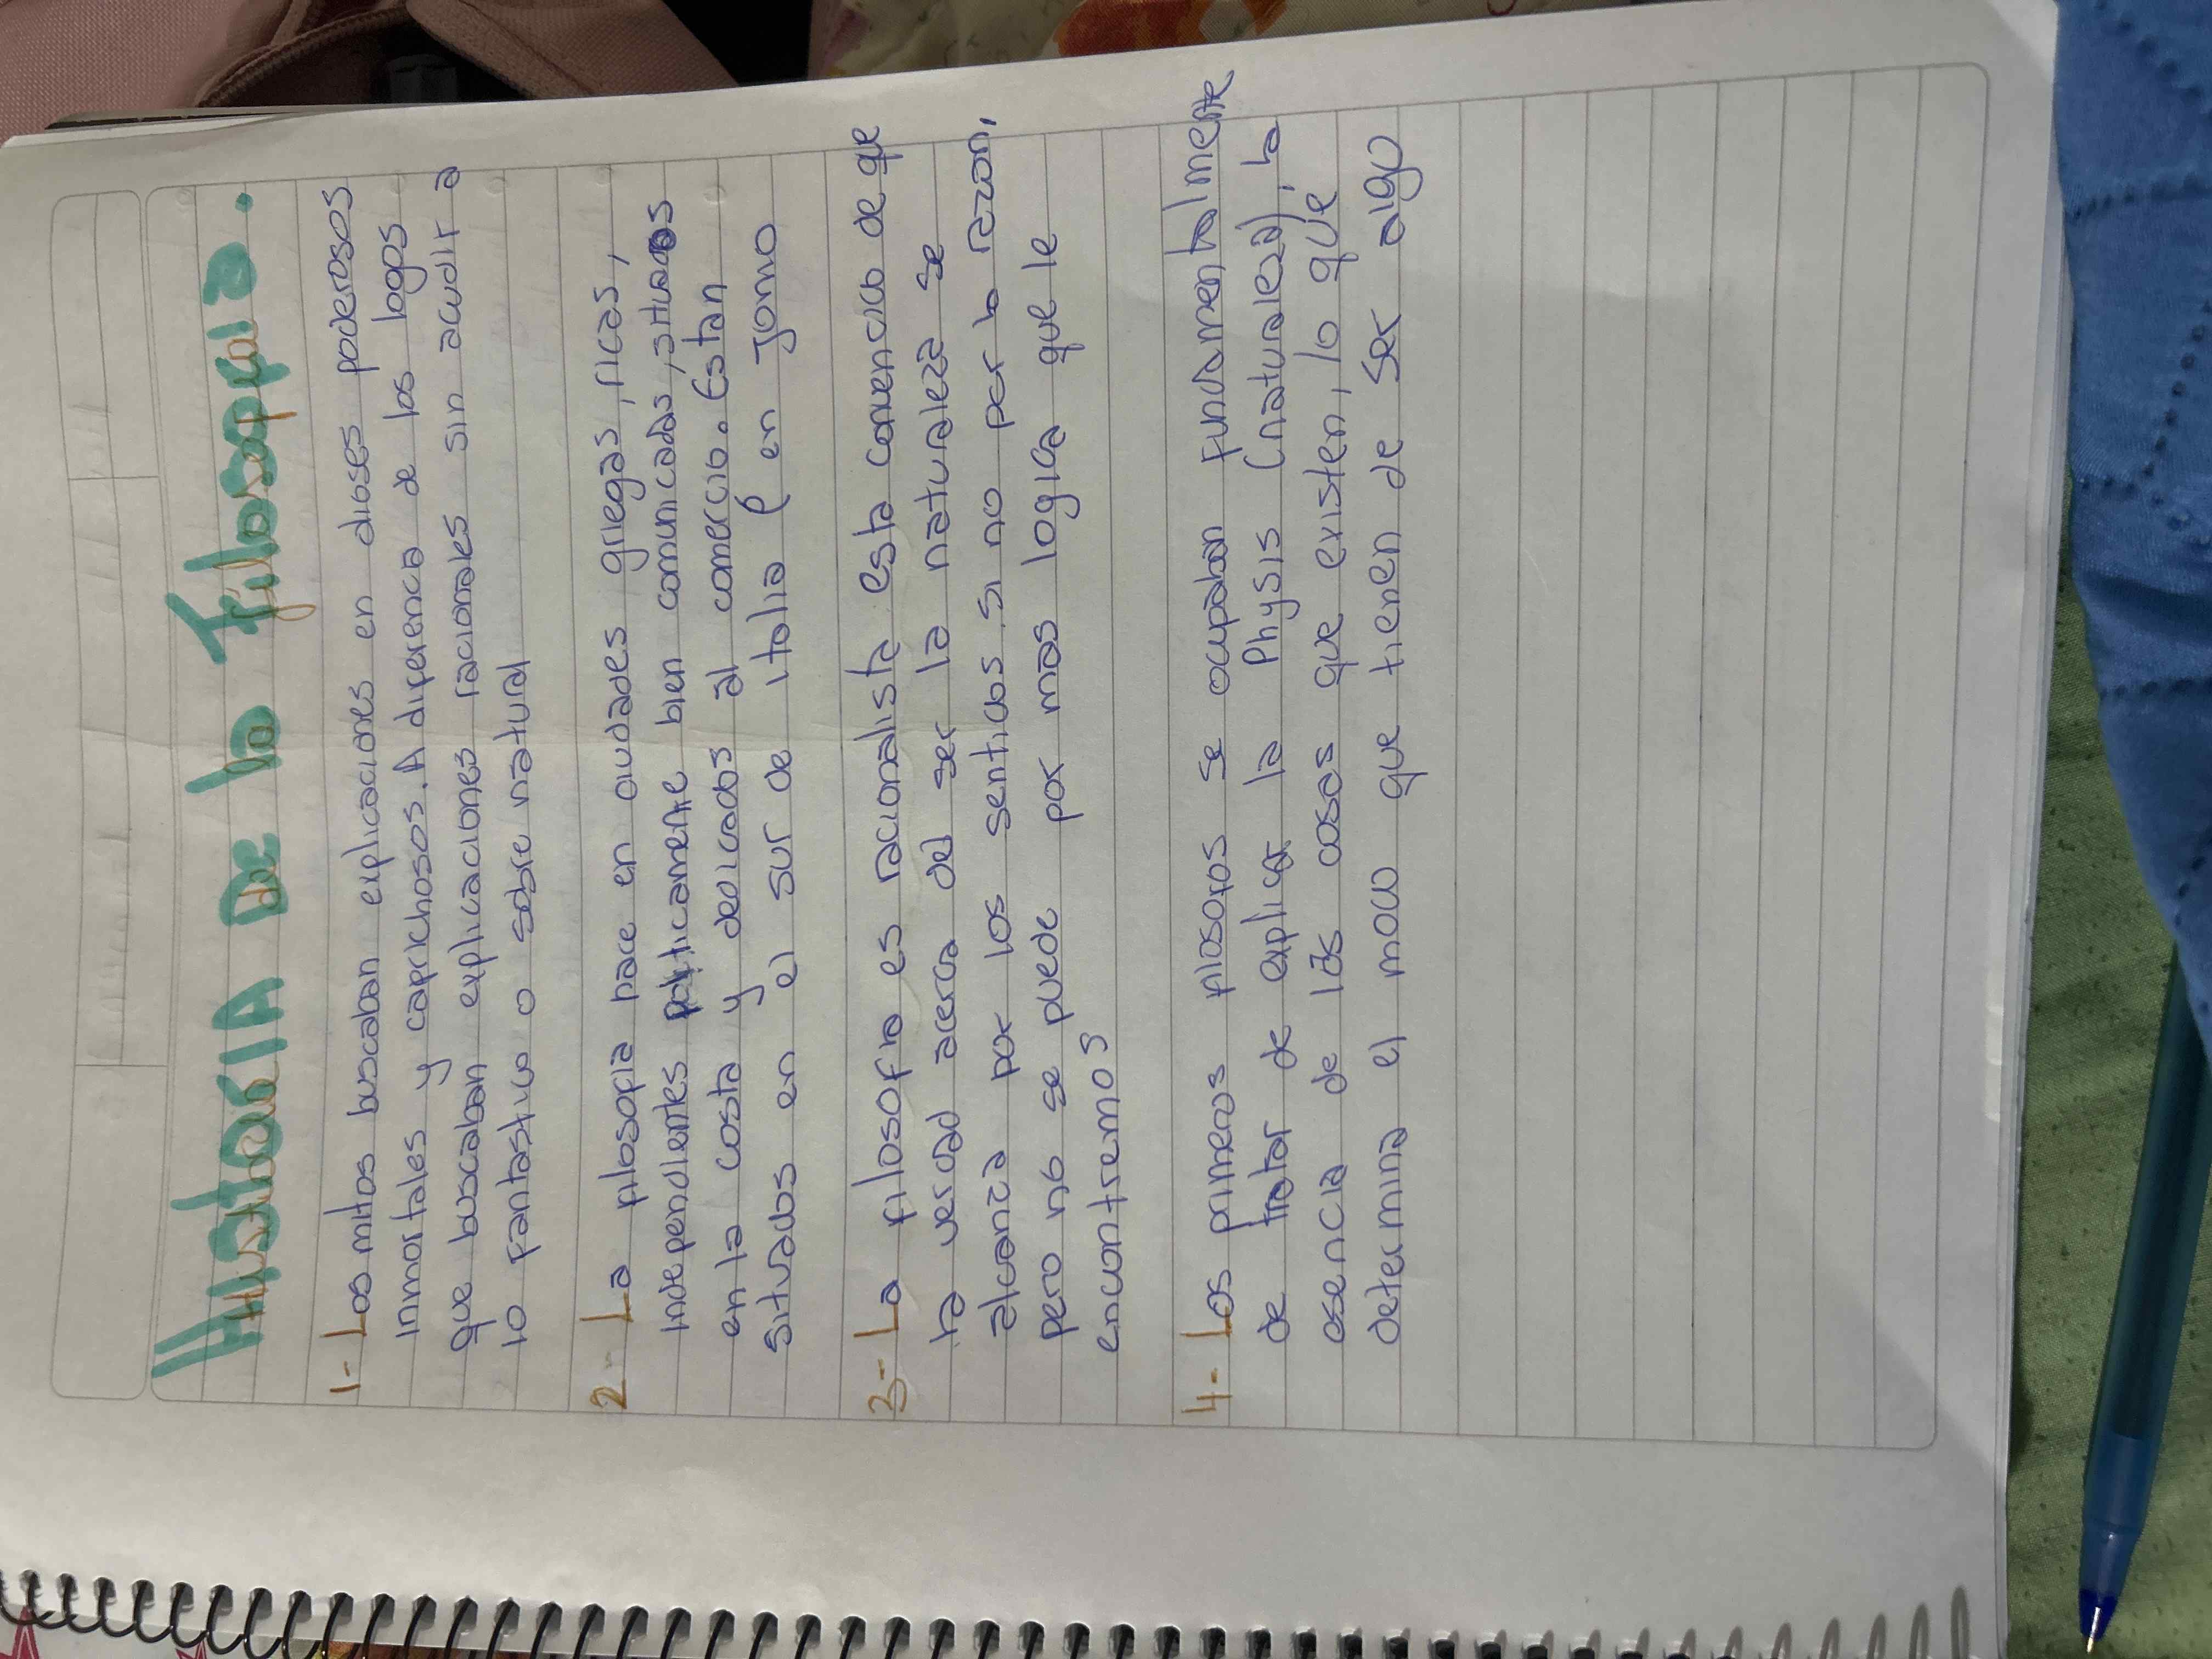 Historia De la Filosofia.
1- Los mitos buscaban explicaciones en dioses poderosos
inmortales y caprichosos. A diferencia de los logos
que buscaban explicaciones racionales sin acudir a
lo fantastico o sobre natural
2- La filosofia nace en ciudades griegas, ricas,
independientes politicamente bien comunicadas, situados
en la costa y dedicados al comercio. Estan
situados en el sur de italia e en Jonio
3- La filosofia es racionalista esta convencido de que
la verdad acerca del ser la naturaleza se
alcanza por los sentidos si no por la razon,
pero no se puede por mas logica que le
encontremos
4- Los primeros filosofos se ocupaban fundamentalmente
de tratar de explicar la Physis (naturaleza), la
esencia de las cosas que existen, lo qué
determina el modo que tienen de ser algo